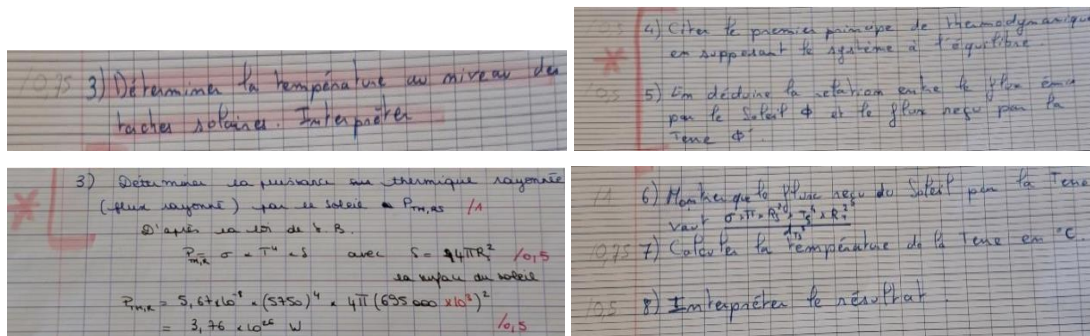 /0,75 3) Déterminer la température au niveau des
taches solaires. Interpréter
3) Déterminer la puissance thermique rayonnée
(flux rayonné) par le soleil P_Th,RS /1
D'après la loi de S.B.
P_Th,R = σ × T⁴ × S avec S = 4πR_S² /0,5
la surface du soleil
P_Th,R = 5,67×10⁻⁸ × (5750)⁴ × 4π(695 000 ×10³)²
= 3,76 × 10²⁶ W /0,5
/0,5 4) Citer le premier principe de thermodynamique
en supposant le système à l'équilibre.
/0,5 5) En déduire la relation entre le flux émis
par le Soleil Φ et le flux reçu par la
Terre Φ'.
/1 6) Montrer que le flux reçu du Soleil par la Terre
vaut
/0,75 7) Calculer la température de la Terre en °C
/0,5 8) Interpréter le résultat.